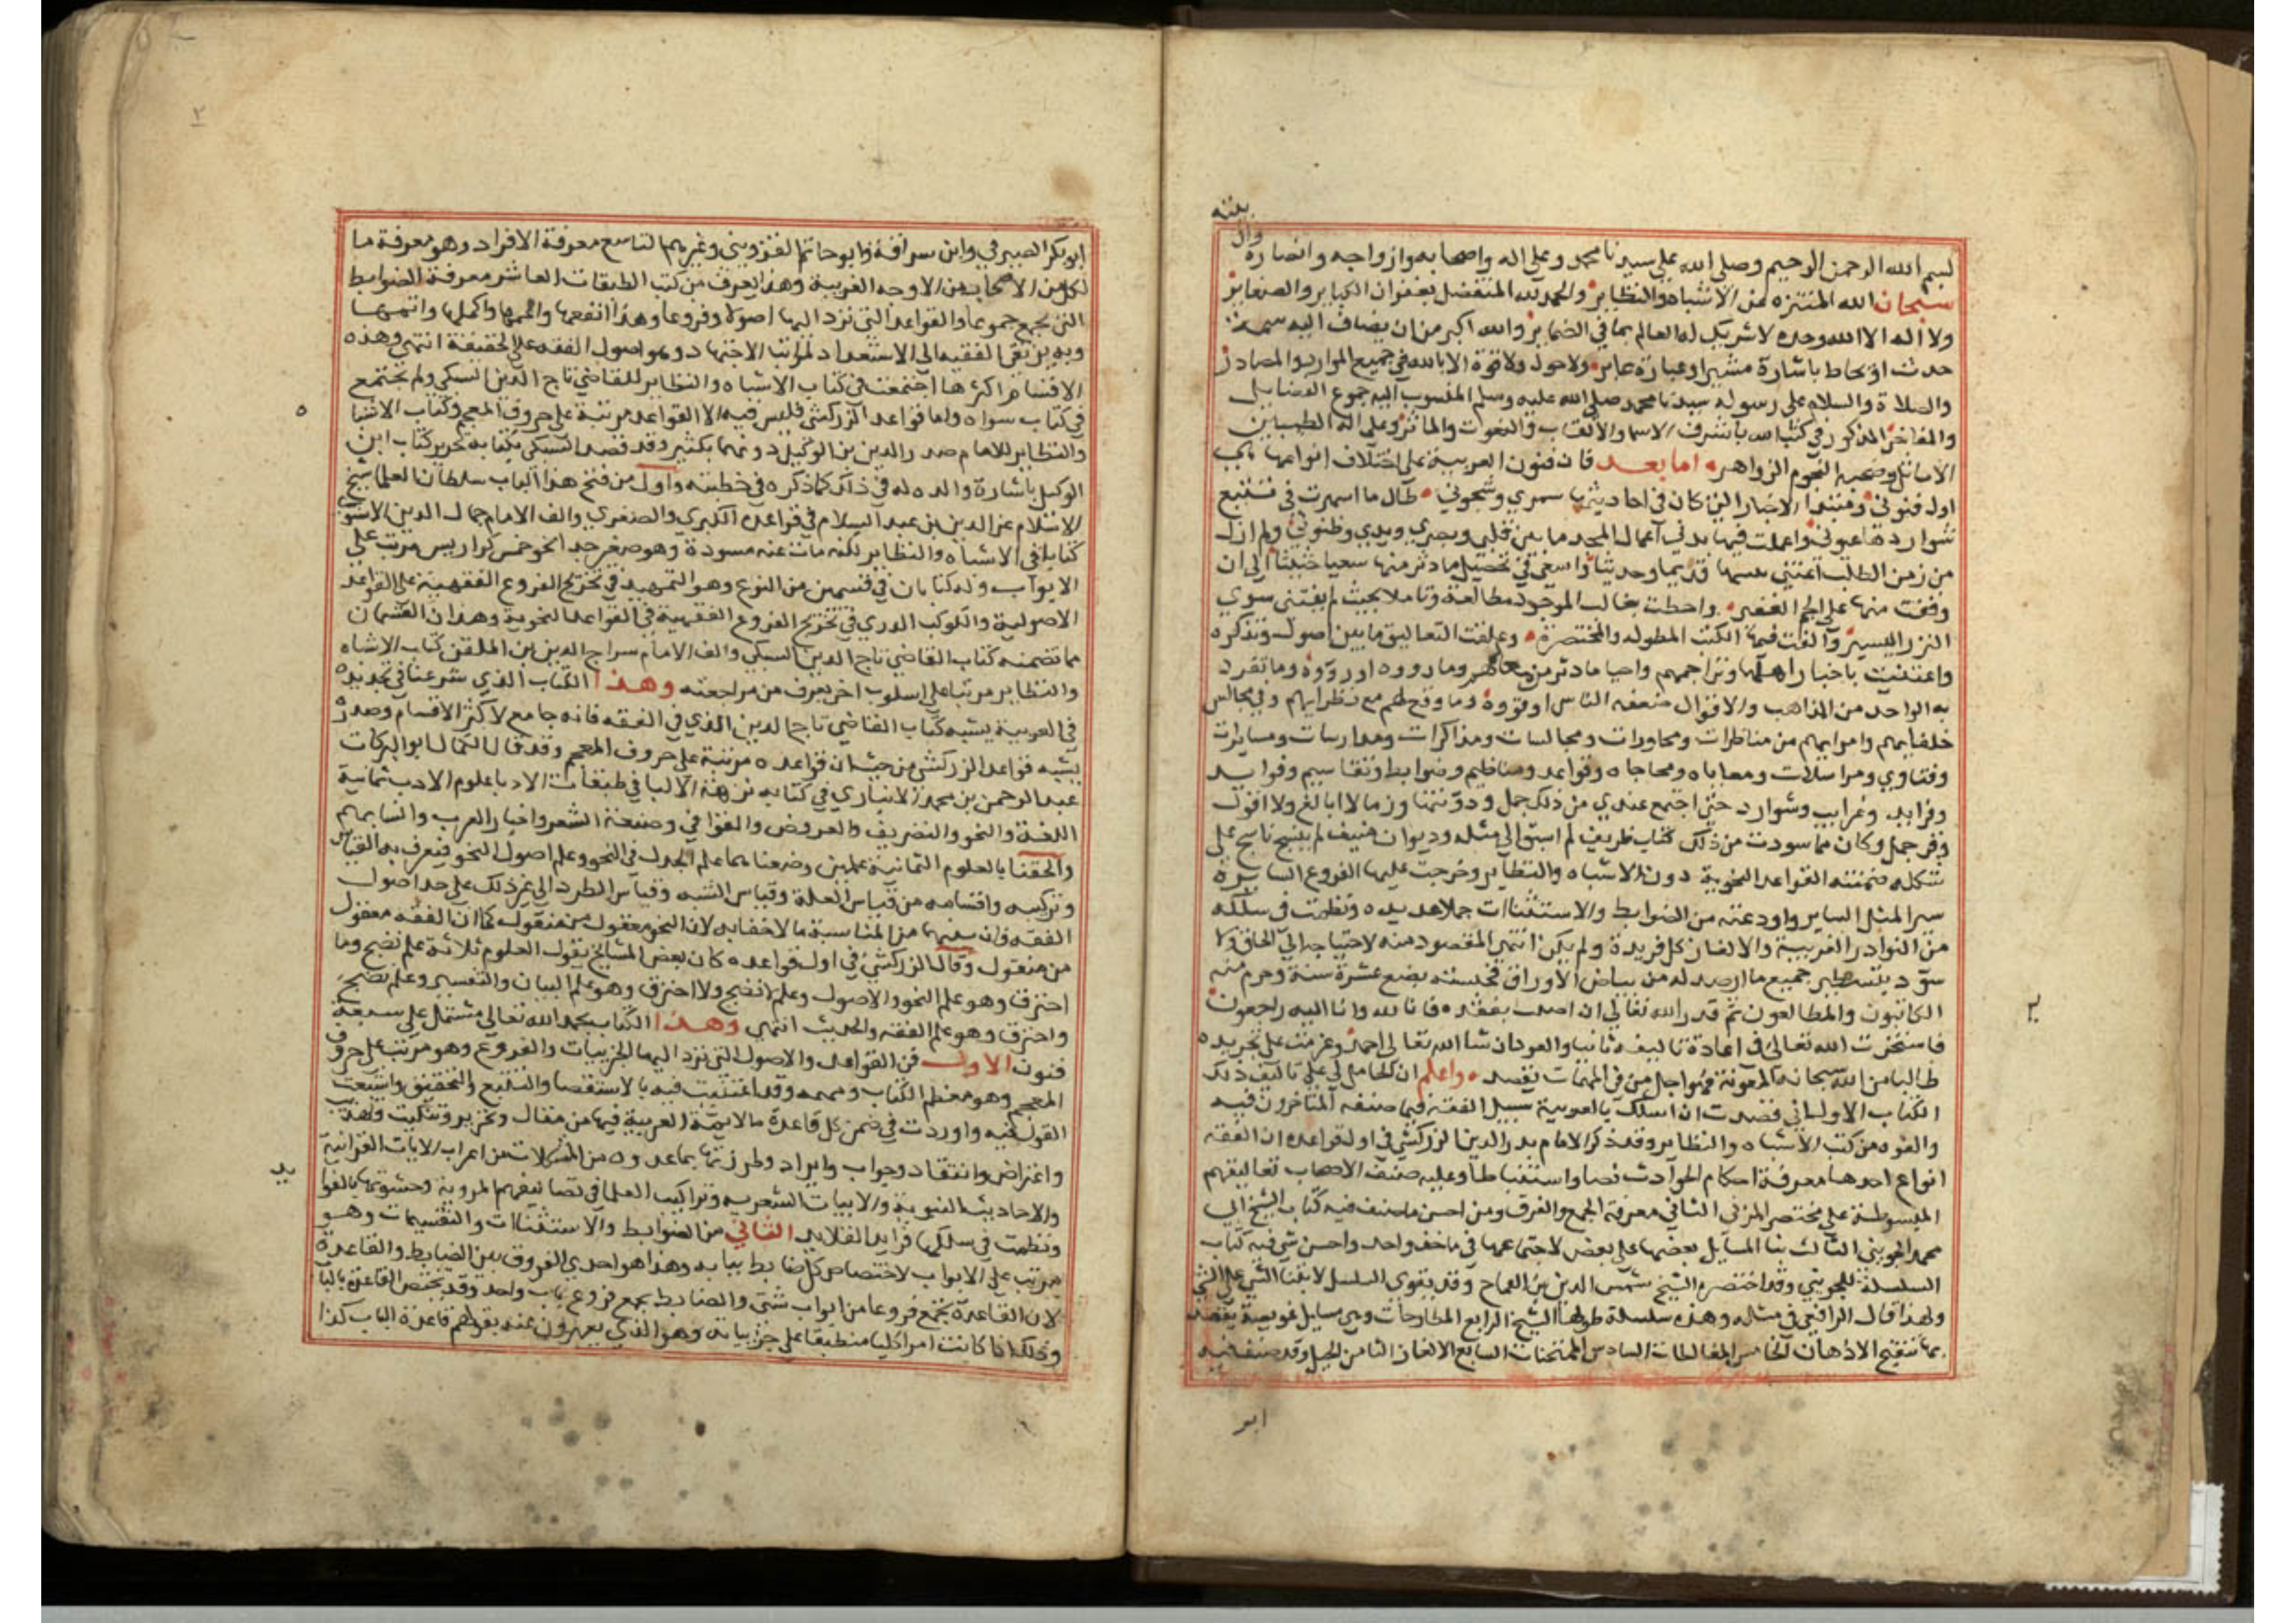 بسم الله الرحمن الرحيم وصلى الله على سيدنا محمد وعلى اله واصحابه وازواجه وانصاره وال
بيته
سبحان الله المنزه عن الاشباه والنظاير والحمد لله المتفضل بغفران الكباير والصغاير
ولا اله الا الله وحده لا شريك له العالم بما في الضماير والله اكبر من ان يضاف اليه سمة
حدث او يحاط باشارة مشير او عبارة عابر ولا حول ولا قوة الا بالله في جميع الموارد والمصادر
والصلاة والسلام على رسوله سيدنا محمد صلى الله عليه وسلم المنسوب اليه جموع الفضايل
والمفاخر المذكور في كتاب الله باشرف الاسما والالقاب والنعوت والماثر وعلى اله الطيبين
الاماثل وصحبه النجوم الزواهر اما بعد فان فنون العربية على اختلاف انواعها هي
اول فنوني ومبتدا الاخبار التي كان في احاديثها سمري وشجوني طال ما اسهرت في تتبع
شواردها عيوني واعملت فيها بدني اعمال المجد ما بين قلبي وبصري ويدي وظنوني ولم ازل
من زمن الطلب اعتني بكتبها قديما وحديثا واسعى في تحصيل ما دثر منها سعيا حثيثا الى ان
وقفت منها على الجم الغفير واحطت بغالب الموجود مطالعة وتاملا بحيث لم يفتني سوى
النزر اليسير والفت فيها الكتب المطوله والمختصرة وعلقت التعاليق ما بين اصول وتذكره
واعتنيت باخبار اهلها وتراجمهم واحيا ما دثر من معالمهم وما رووه او رووه وما تفرد
به الواحد من المذاهب والاقوال ضعفه الناس او قووه وما وقع لهم مع نظرايهم وفي مجالس
خلفايهم وامرايهم من مناظرات ومحاورات ومجالسات ومذاكرات ومدارسات ومسايرات
وفتاوي ومراسلات ومعاياه ومحاجاه وقواعد ومناظيم وضوابط وتقاسيم وفوايد
وفرايد وغرايب وشوارد حتى اجتمع عندي من ذلك جمل ودونتها رزما لا ابالغ ولا اقول
وقر جمل وكان مما سودت من ذلك كتاب ظريف لم اسبق الى مثله وديوان منيف لم ينسج ناسج على
شكله ضمنته القواعد النحوية ذوات الاشباه والنظاير وخرجت عليها الفروع السايرة
سير المثل الساير واودعته من الضوابط والاستثناات جملا عديده ونظمت في سلكه
من النوادر الغريبة والالغاز كل فريدة ولم يكن انتهى المقصود منه لاحتياجه الى الحاق ولا
سود بتسطير جميع ما ارصد له من بياض الاوراق فحبسته بضع عشرة سنة وحرم منه
الكاتبون والمطالعون ثم قدر الله تعالى ان اصبت بفقده فانا لله وانا اليه راجعون
فاستخرت الله تعالى في اعادة تاليفه ثانيا والعود ان شا الله تعالى احمد وعزمت على تجديده
طالبا من الله سبحانه المعونة فهو اجل من في المهمات يقصد واعلم ان الحامل لي على تاليف ذلك
الكتاب الاول اني قصدت ان اسلك بالعربية سبيل الفقه فيما صنفه المتاخرون فيه
والفوه من كتب الاشباه والنظاير وقد ذكر الامام بدر الدين الزركشي في اول قواعده ان الفقه
انواع احدها معرفة احكام الحوادث نصا واستنباطا وعليه صنف الاصحاب تعاليقهم
المبسوطة على مختصر المزني الثاني معرفة الجمع والفرق ومن احسن ما صنف فيه كتاب الشيخ ابي
محمد الجويني الثالث بنا المسايل بعضها على بعض لاجتماعها في ماخذ واحد واحسن شي فيه كتاب
السلسلة للجويني وقد اختصره الشيخ شمس الدين بن القماح وقد يقوى التسلسل لابتنا الشي على الشي
ولهذا قال الرافعي في مثله وهذه سلسلة طولها الشيخ الرابع المطارحات وهي مسايل عويصة يقصد
بها تنقيح الاذهان الخامس المغالطات السادس الممتحنات السابع الالغاز الثامن الحيل وقد صنف فيه
ابو
ابو بكر الصيرفي وابن سراقة وابو حاتم القزويني وغيرهم التاسع معرفة الافراد وهو معرفة ما
لكل من الاصحاب من الاوجه الغريبة وهذا يعرف من كتب الطبقات العاشر معرفة الضوابط
التي تجمع جموعا والقواعد التي ترد اليها اصولا وفروعا وهذا انفعها واعمها واكملها واتمها
وبه يرتقي الفقيه الى الاستعداد لمراتب الاجتهاد وهو اصول الفقه على الحقيقة انتهى وهذه
الاقسام اكثرها اجتمعت في كتاب الاشباه والنظاير للقاضي تاج الدين السبكي ولم تجتمع
في كتاب سواه واما قواعد الزركشي فليس فيه الا القواعد مرتبة على حروف المعجم وكتاب الاشبا
والنظاير للامام صدر الدين بن الوكيل دونهما بكثير وقد قصد السبكي بكتابه تحرير كتاب ابن
الوكيل باشارة والده له في ذلك كما ذكره في خطبته واول من فتح هذا الباب سلطان العلما شيخ
الاسلام عز الدين بن عبد السلام في قواعده الكبرى والصغرى والف الامام جمال الدين الاسنوي
كتابا في الاشباه والنظاير لكنه مات عنه مسودة وهو صغير جدا نحو خمس كراريس مرتب على
الابواب وله كتابان في قسمين من النوع وهو التمهيد في تخريج الفروع الفقهية على القواعد
الاصولية والكوكب الدري في تخريج الفروع الفقهية في القواعد النحوية وهذان القسمان
مما تضمنه كتاب القاضي تاج الدين السبكي والف الامام سراج الدين بن الملقن كتاب الاشباه
والنظاير مرتبا على اسلوب اخر يعرف من مراجعته وهذا الكتاب الذي شرعنا في تجديده
في العربية يشبه كتاب القاضي تاج الدين الذي في الفقه فانه جامع لاكثر الاقسام وصدره
يشبه قواعد الزركشي من حيث ان قواعده مرتبة على حروف المعجم وقد قال الكمال ابو البركات
عبد الرحمن بن محمد الانباري في كتابه نزهة الالبا في طبقات الادبا علوم الادب ثمانية
اللغة والنحو والتصريف والعروض والقوافي وصنعة الشعر واخبار العرب وانسابهم
والحقنا بالعلوم الثمانية علمين وضعناهما علم الجدل في النحو وعلم اصول النحو فيعرف به القياس
وتركيبه واقسامه من قياس العلة وقياس الشبه وقياس الطرد الى غير ذلك على حد اصول
الفقه فان بينهما من المناسبة ما لا خفا به لان النحو معقول من منقول كما ان الفقه معقول
من منقول وقال الزركشي في اول قواعده كان بعض المشايخ يقول العلوم ثلاثة علم نضج وما
احترق وهو علم النحو والاصول وعلم لا نضج ولا احترق وهو علم البيان والتفسير وعلم نضج
واحترق وهو علم الفقه والحديث انتهى وهذا الكتاب بحمد الله تعالى مشتمل على سبعة
فنون الاول فن القواعد والاصول التي ترد اليها الجزييات والفروع وهو مرتب على حروف
المعجم وهو معظم الكتاب ومهمه وقد اعتنيت فيه بالاستقصا والتتبع والتحقيق واشبعت
القول فيه واوردت في ضمن كل قاعدة ما لايمة العربية فيها من مقال وتحرير وتنكيت وتهذيب
واعتراض وانتقاد وجواب وايراد وطرزتها بما عدوه من المشكلات من اعراب الايات القرانية
والاحاديث النبوية والابيات الشعرية وتراكيب العلما في تصانيفهم المروية وحشوتها بالفوا
يد
ونظمت في سلكها فرايد القلايد الثاني من الضوابط والاستثناات والتقسيمات وهو
مرتب على الابواب لاختصاص كل ضابط ببابه وهذا هو احدى الفروق بين الضابط والقاعدة
لان القاعدة تجمع فروعا من ابواب شتى والضابط يجمع فروع باب واحد وقد تختص القاعدة بالبا
وذلك اذا كانت امرا كليا منطبقا على جزيياته وهو الذي يعبرون عنه بقولهم قاعدة الباب كذا
٢